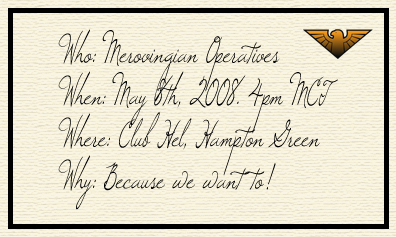 Who: Merovingian Operatives
When: May 8th, 2008. 4pm MCT
Where: Club Hel, Hampton Green
Why: Because we want to!